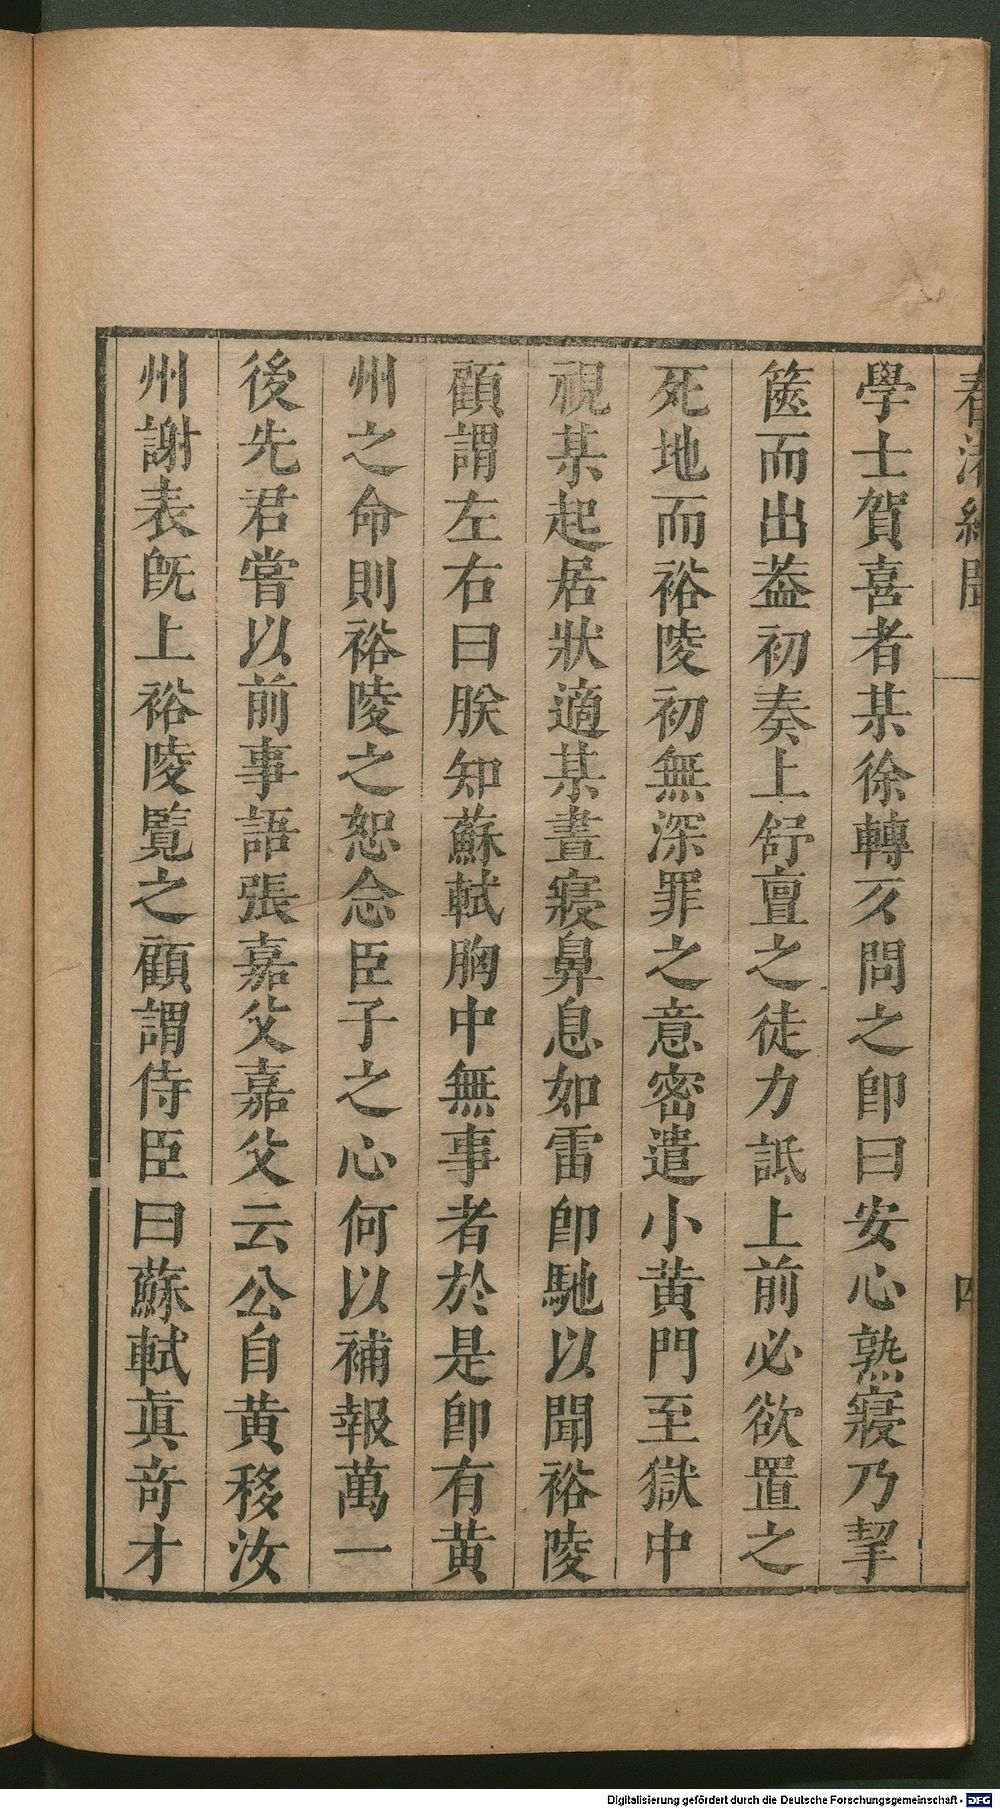 學士賀喜者某徐轉仄問之卽曰安心熟寢乃挈
篋而出葢初奏上舒亶之徒力詆上前必欲置之
死地而裕陵初無深罪之意密遣小黄門至獄中
視某起居狀適某晝寢鼻息如雷卽馳以聞裕陵
顧謂左右曰朕知蘇軾胸中無事者於是卽有黄
州之命則裕陵之恕念臣子之心何以補報萬一
後先君嘗以前事語張嘉父嘉父云公自黄移汝
州謝表旣上裕陵覧之顧謂侍臣曰蘇軾眞竒才
Digitalisierung gefördert durch die Deutsche Forschungsgemeinschaft - DFG